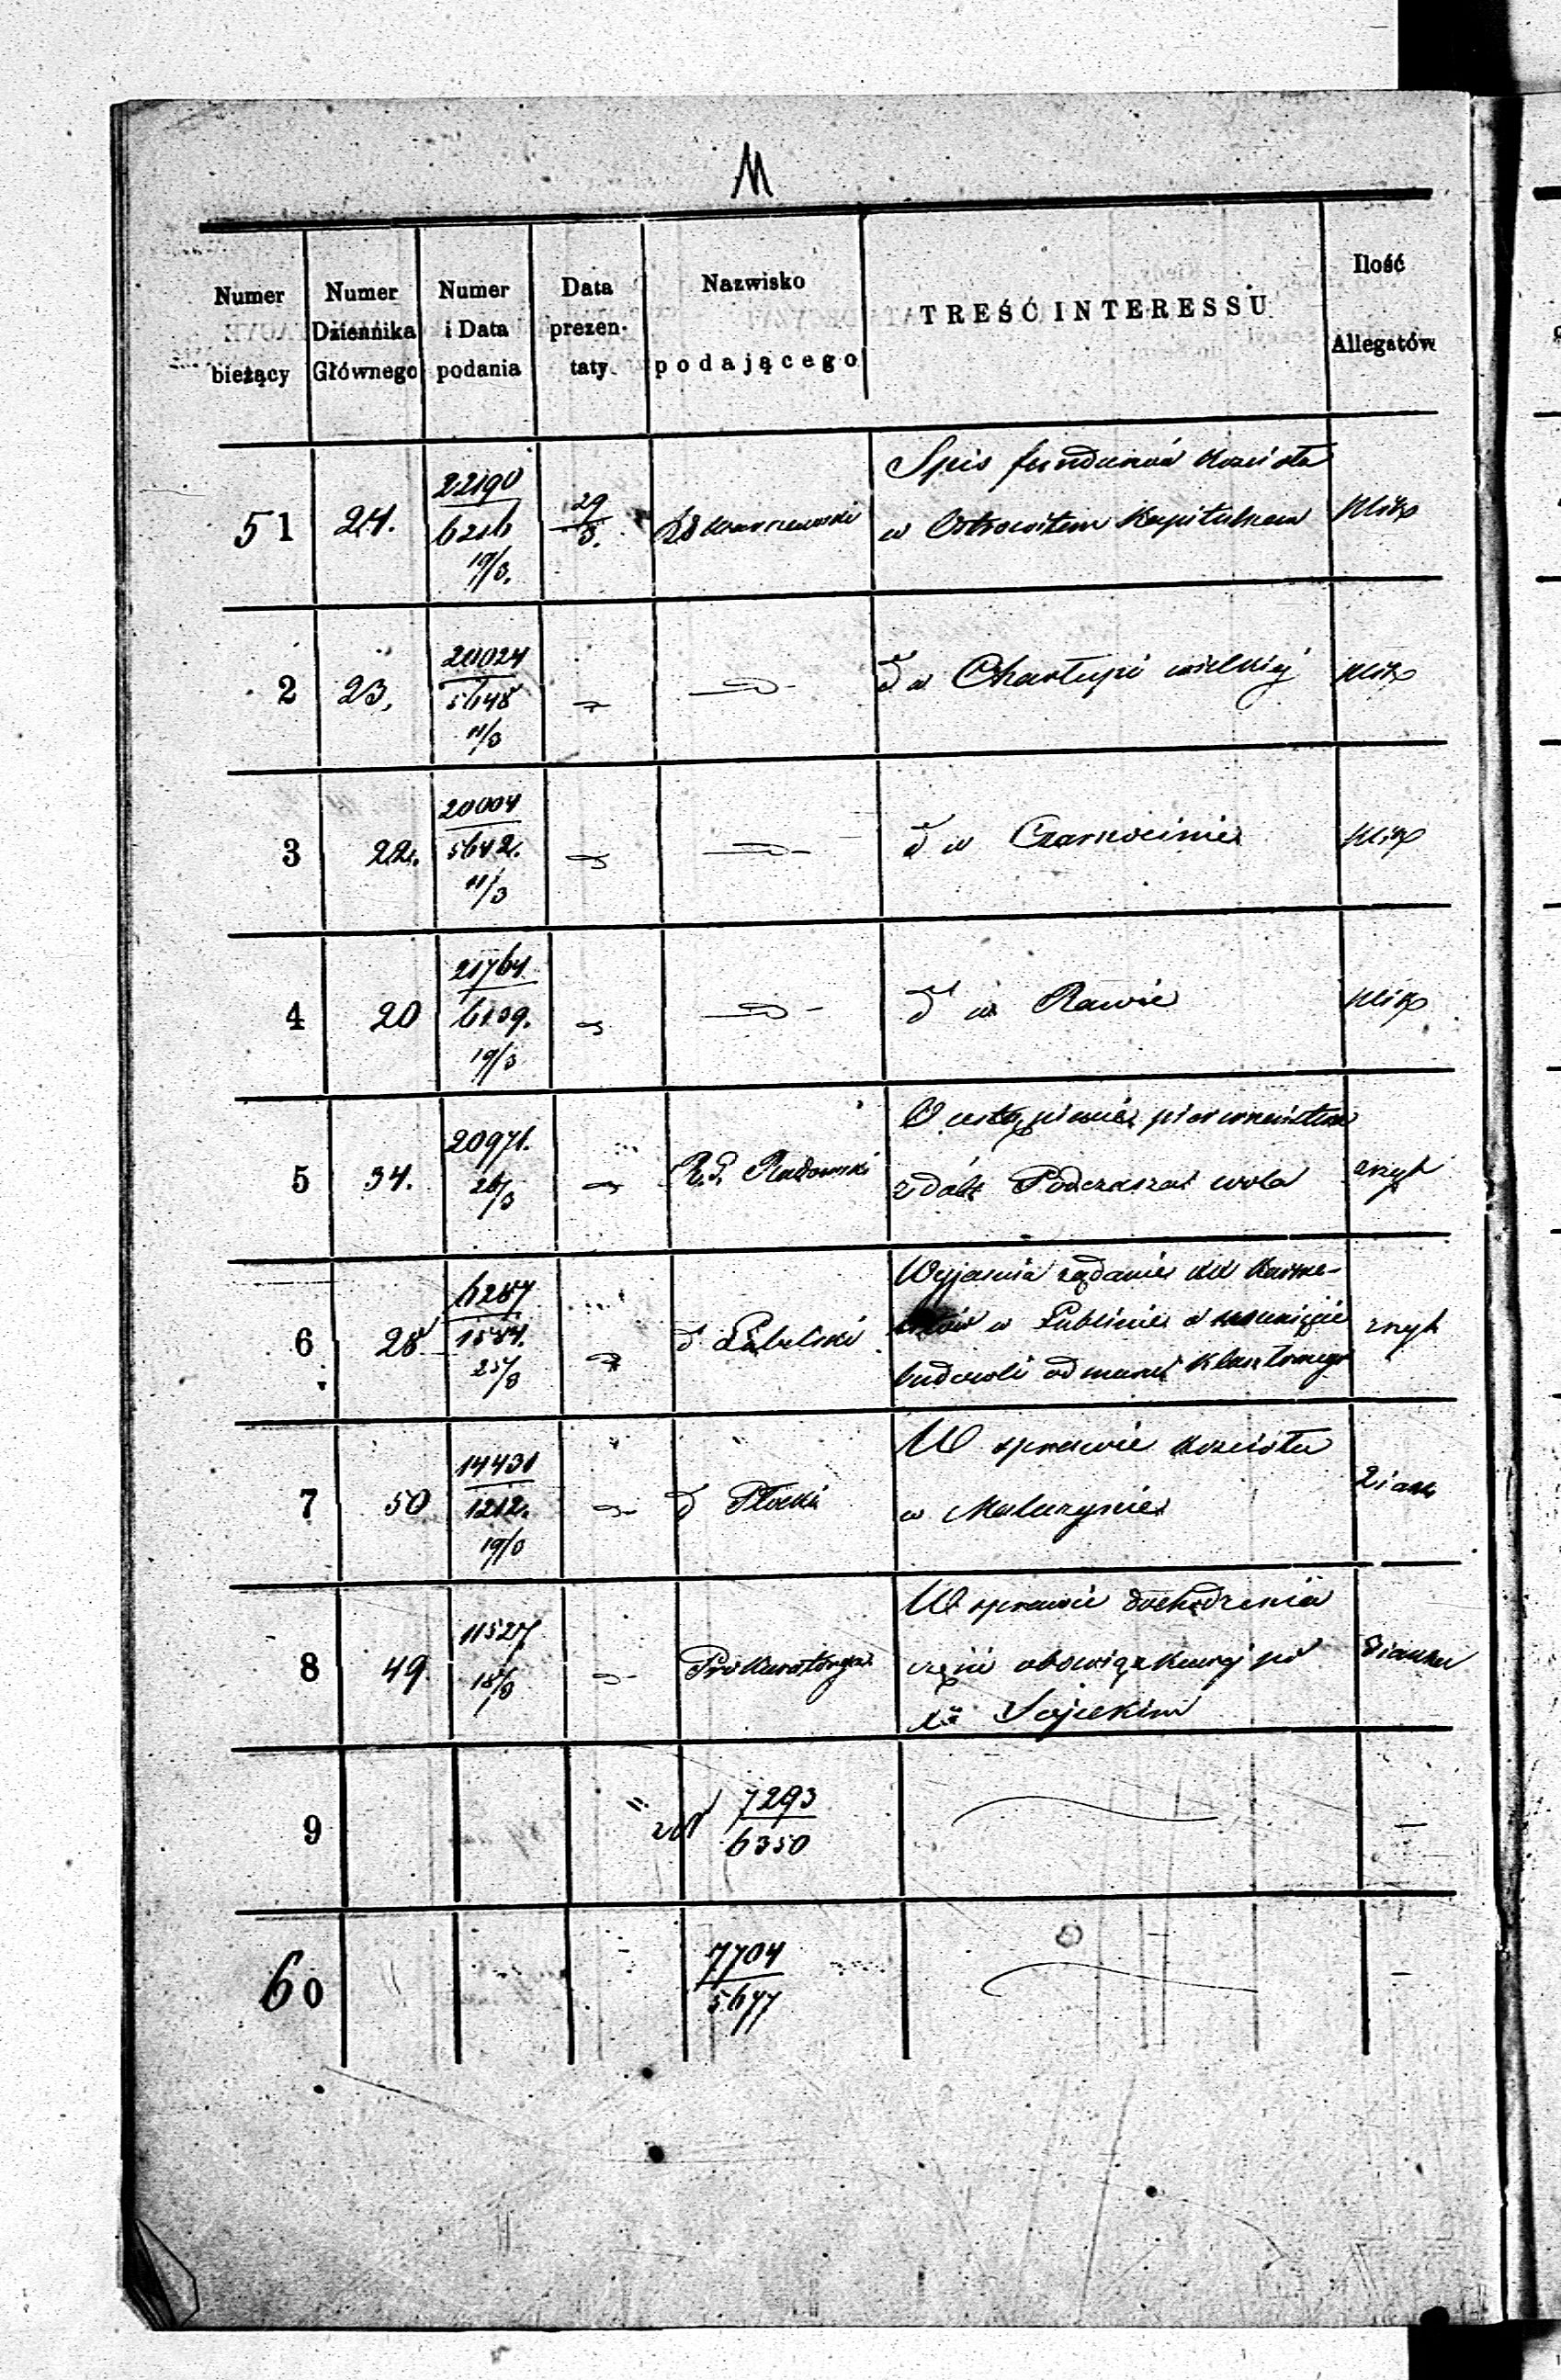 M
Numer bieżący | Numer Dziennika Głównego | Numer i Data podania | Data prezen-taty | Nazwisko podającego | TREŚĆ INTERESSU | Ilość Allegatów
51 | 24. | 22190 / 6216 19/3. | 29/3. | Warszawski | Spis funduszów Kościoła
w Ostrowitem Kapitulnem
2 | 23, | 20024 / 5648 11/3 | d w Charłupi wielkiej
3 | 22. | 20004 / 5642. 11/3 | d w Czarnocinie
4 | 20 | 21764 / 6139. 19/3 | d w Rawie
5 | 34. | 20971. 26/3 | R. G. Radomski | O ustąpienie pierwszeństwa
z dóbr Podczasza wola
6 | 28 | 6287 / 1584. 25/3 | d Lubelski | Wyjaśnia żądanie XX Karme-
litów w Lublinie o usunięcie
budowli od muru Klasztornego
7 | 50 | 14431 / 1212. 19/3 | d Płocki | W sprawie Kościoła
w Maluzynie
8 | 49 | 11527 18/3 | Prokuratorya | W sprawie dochodzenia
części obowiązkowej po
Sojeckim
9 | 7293 / 6350 | —
60 | 7704 / 5677 | —